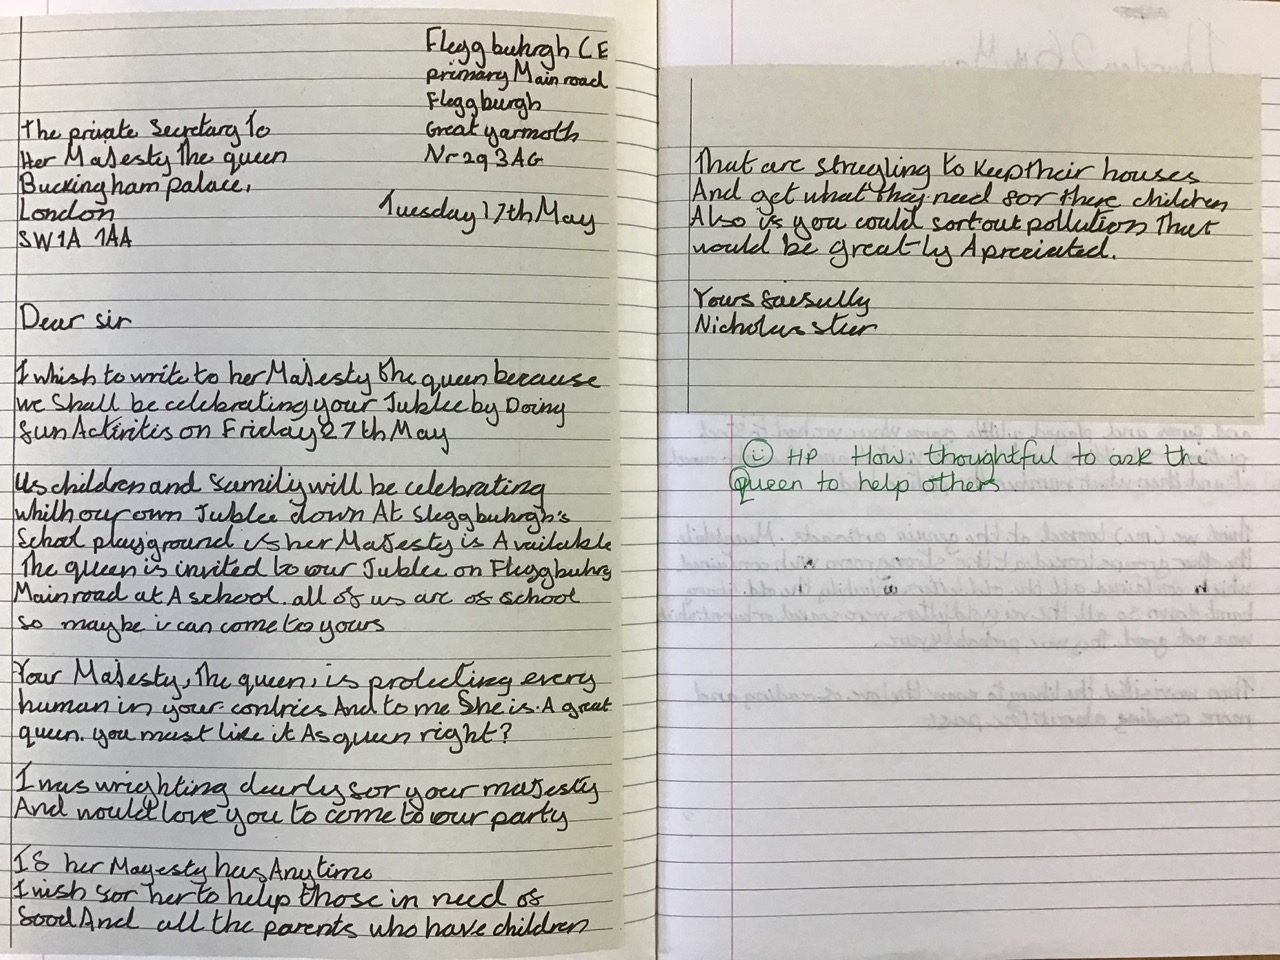 Fleggbuhrgh CE
primary Main road
Fleggburgh
Great yarmoth
Nr29 3AG
The private Secretary To
Her Majesty The queen
Buckingham palace,
London
SW1A 1AA
Tuesday 17th May
Dear sir
I whish to write to her Majesty the queen because
we Shall be celebrating your Jublee by Doing
fun Activitis on Friday 27th May
Us children and family will be celebrating
whith our own Jublee down At fleggbuhrgh's
School playground if her Majesty is Available
The queen is invited to our Jublee on Fleggbuhrg
Main road at A school. all of us are of school
so maybe it can come to yours
Your Majesty, The queen, is protecting every
human in your contries And to me She is A great
queen. you must like it As queen right?
I was wrighting dearly for your majesty
And would love you to come to our party
If her Mayesty has Any time
I wish for her to help those in need of
food And all the parents who have children
That are strugling to keep Their houses
And get what they need for there children
Also if you could sort out pollution That
would be greatly Apreciated.
Yours
Nicholas
HP How thoughtful to ask the
Queen to help others